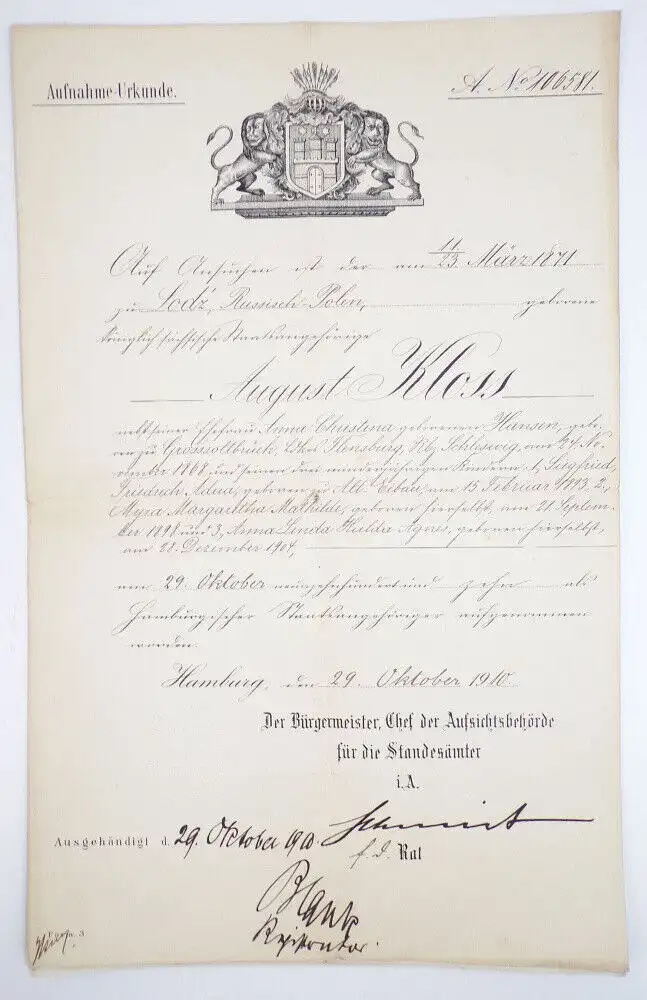 Aufnahme-Urkunde.
A. No 106581.
Auf Ansuchen ist der am 11/23 März 1871
zu Lodź, Russisch-Polen, geborene
königlich sächsische Staatsangehörige
August Kloss
nebst seiner Ehefrau Anna Christena geborenen Hansen, gebo-
ren zu Grosssoltbrück, Schleswig, am 24. No-
vember 1868, und seinen drei minderjährigen Kindern 1, Siegfried
Friedrich geboren zu am 15. Februar 2,
Margaretha Mathilde, geboren hierselbst, am 21 Septem-
ber 1898 und 3, Anna Linda Hulda Agnes, geboren hierselbst,
am 28. Dezember 1904,
am 29. Oktober neunzehnhundertund zehn als
Hamburgischer Staatsangehöriger aufgenommen
worden.
Hamburg, den 29. Oktober 1910.
Der Bürgermeister, Chef der Aufsichtsbehörde
für die Standesämter
i. A.
Ausgehändigt d. 29. Oktober 1910.
f. d. Rat
Registrator.
3